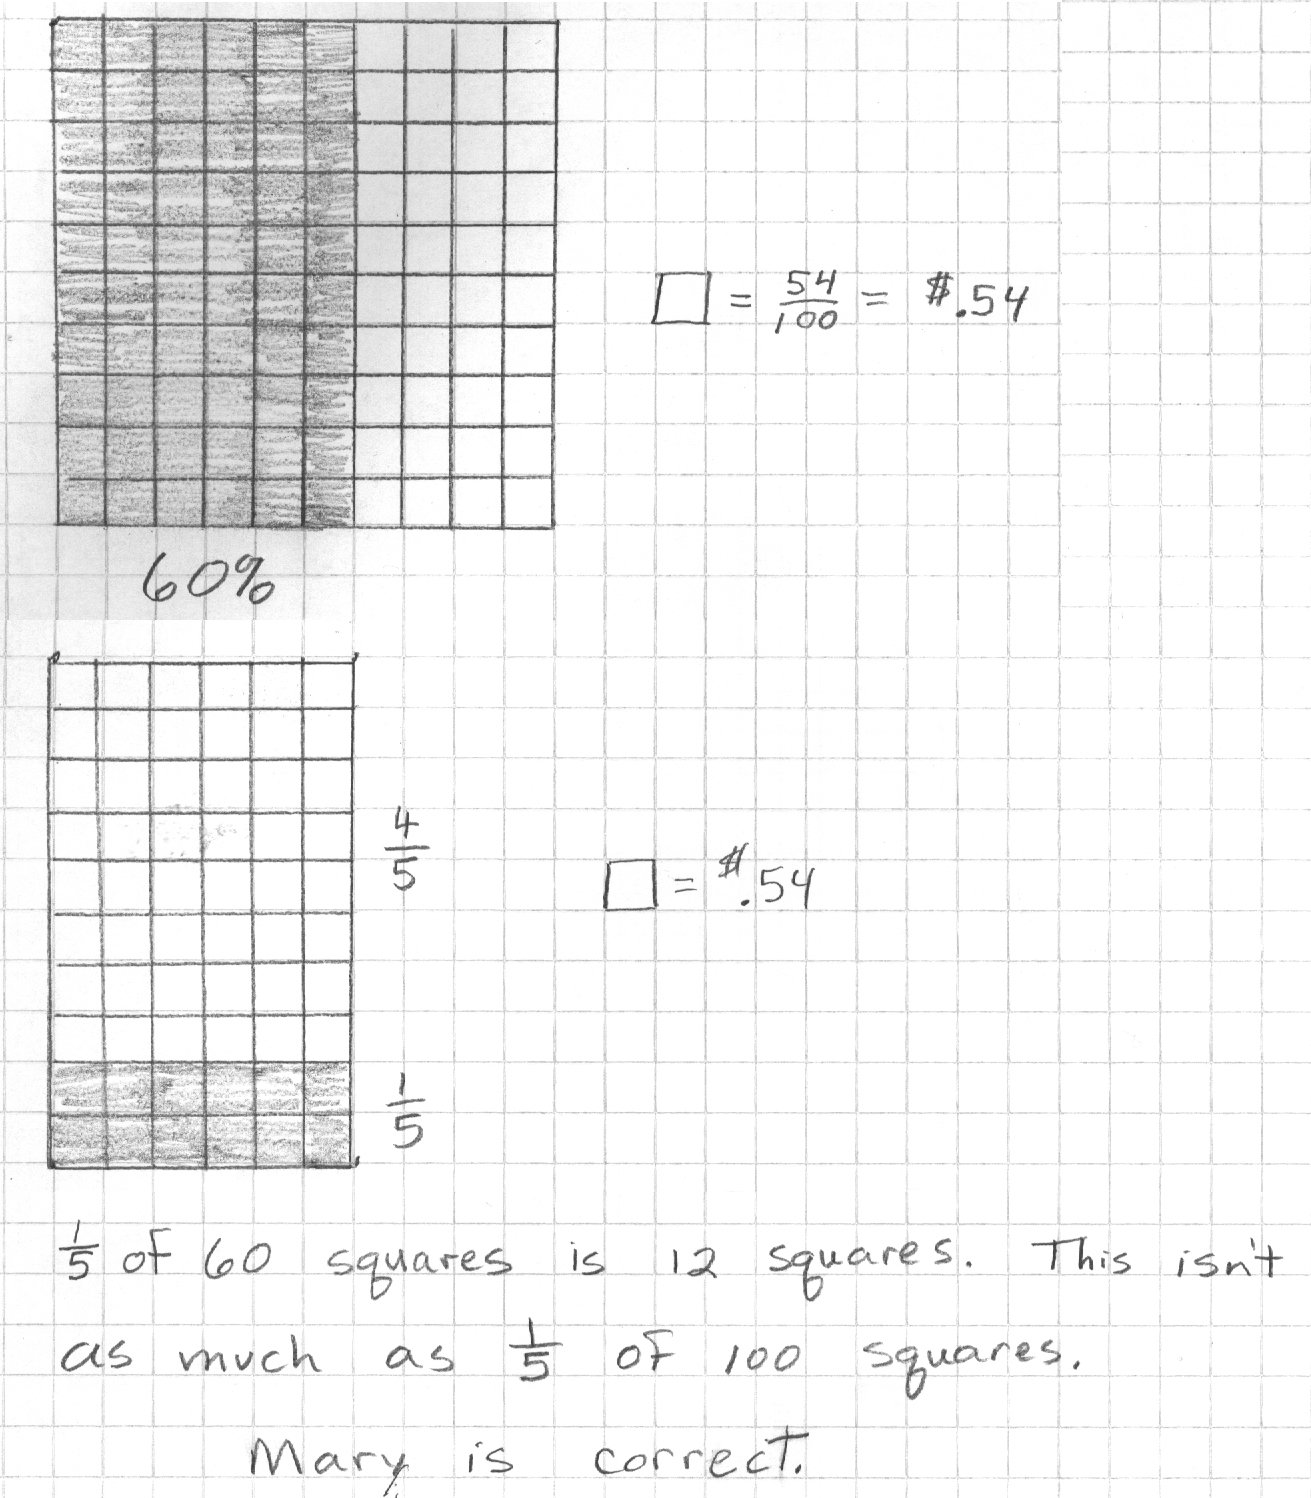 □ = 54/100 = $.54
60%
4/5
□ = $.54
1/5
1/5 of 60 squares is 12 squares. This isn't
as much as 1/5 of 100 squares.
Mary is correct.